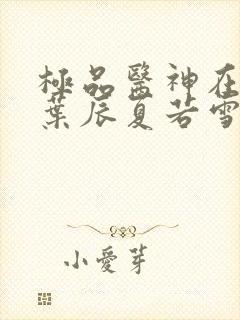 極品醫神在
葉辰夏若雪
小愛芽